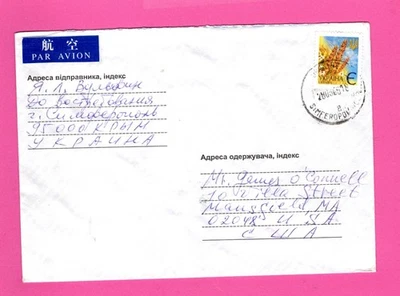 航 空
PAR AVION
УКРАЇНА
Є
SIMFEROPOL
Адреса відправника, індекс
Я. Л. Вульфин
до востребования
г. Симферополь
95000 КРЫМ
УКРАИНА
Адреса одержувача, індекс
Mr. James O'Connell
10 Street
Mansfield, MA
02048 U.S.A.
США